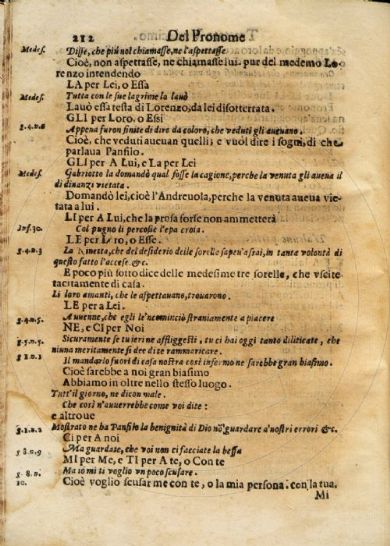 212 Del Pronome
Medes. Disse, che più nol chiamasse, ne l'aspettasse
Cioè, non aspettasse, ne chiamasse lui. pur del medemo Lo
renzo intendendo
LA per Lei, o Essa
Medes. Tutta con le sue lagrime la lauò
Lauò essa testa di Lorenzo, da lei disotterrata.
GLI per Loro, o Essi
g.4.n.6 Appena furon finite di dire da coloro, che veduti gli aueuano.
Cioè, che veduti aueuan quelli; e vuol dire i sogni, di che
parlaua Panfilo.
GLI per A Lui, e La per Lei
Medes. Gabriotto la domandò qual fosse la cagione, perche la venuta gli auena il
dì dinanzi vietata.
Domandò lei, cioè l'Andreuola, perche la venuta aueua vie
tata a lui.
LI per A Lui, che la prosa forse non ammetterà
Inf.30. Col pugno li percosse l'epa croia.
LE per Loro, o Esse.
g.4.n.3 La Ninetta, che del desiderio delle sorelle sapeu' assai, in tanta volontà di
questo fatto l'accese &c.
E poco più sotto dice delle medesime tre sorelle, che vscite
tacitamente di casa.
Li loro amanti, che le aspettauano, trouarono.
LE per a Lei.
g.4.n.5. Auuenne, che egli le'ncominciò stranamente a piacere
NE, e CI per Noi
g.5.n.9. Sicuramente se tu ieri ne affliggesti, tu ci hai oggi tanto diliticate, che
niuna meritamente si dee di te rammaricare.
g 1.n.1 Il mandarlo fuori di casa nostra così infermo ne sarebbe gran biasimo.
Cioè sarebbe a noi gran biasimo
Abbiamo in oltre nello stesso luogo.
Tutt'il giorno, ne dicon male.
Che così n'auuerrebbe come voi dite:
e altroue
g.1.n.2 Mostrato ne ha Panfilo la benignità di Dio nō guardare a' nostri errori &c.
Ci per A noi
g 8.n.9 Ma guardase, che voi non ci facciate la beffa
MI per Me, e TI per A te, o Con te
g. 8.n. Ma io mi ti voglio vn poco scusare.
10. Cioè voglio scusar me con te, o la mia persona con la tua.
Mi